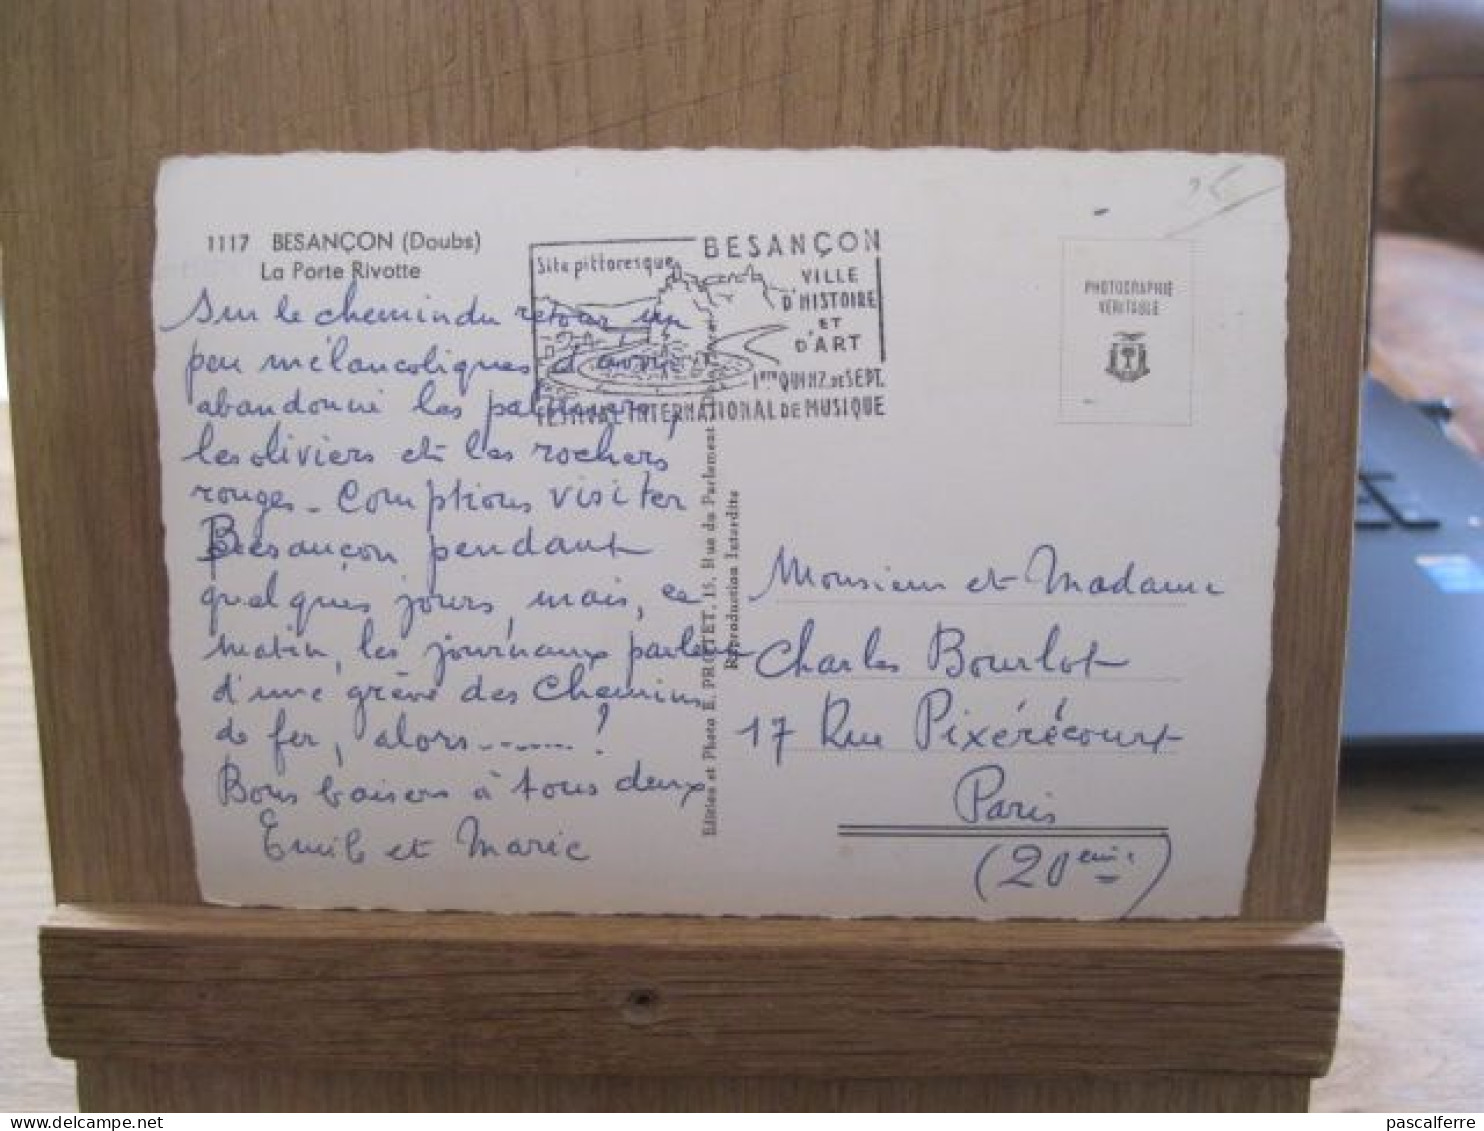 1117 BESANÇON (Doubs)
La Porte Rivotte
Sur le chemin du retour un
peu mélancoliques d'avoir
abandonné les palmiers,
les oliviers et les rochers
rouges - Comptions visiter
Besançon pendant
quelques jours, mais, ce
matin, les journaux parlent
d'une grève des Chemins
de fer, alors.......?
Bons baisers à tous deux
Emile et Marie
Site pittoresque
BESANÇON
VILLE
D'HISTOIRE
ET
D'ART
1ère QUINZ. DE SEPT.
FESTIVAL INTERNATIONAL DE MUSIQUE
Edition et Photo E. PROTET, 15, Rue du Parlement
Reproduction Interdite
PHOTOGRAPHIE
VÉRITABLE
Monsieur et Madame
Charles Bourlot
17 Rue Pixérécourt
Paris
(20eme)
pascalferre